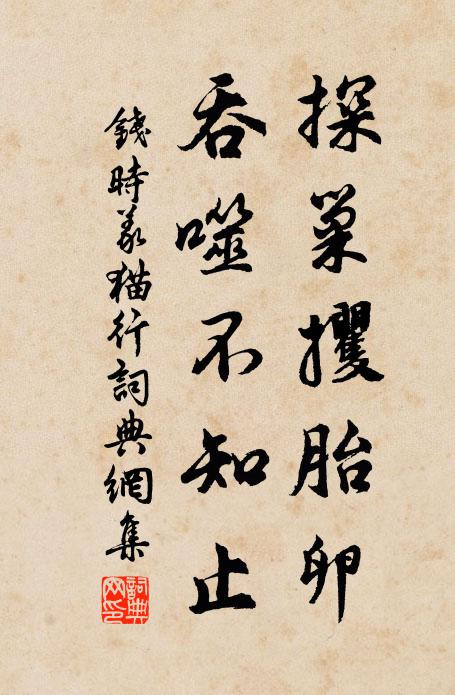 探巢攫胎卵
吞噬不知止
錢時義猫行詞典網集
詞典
网印